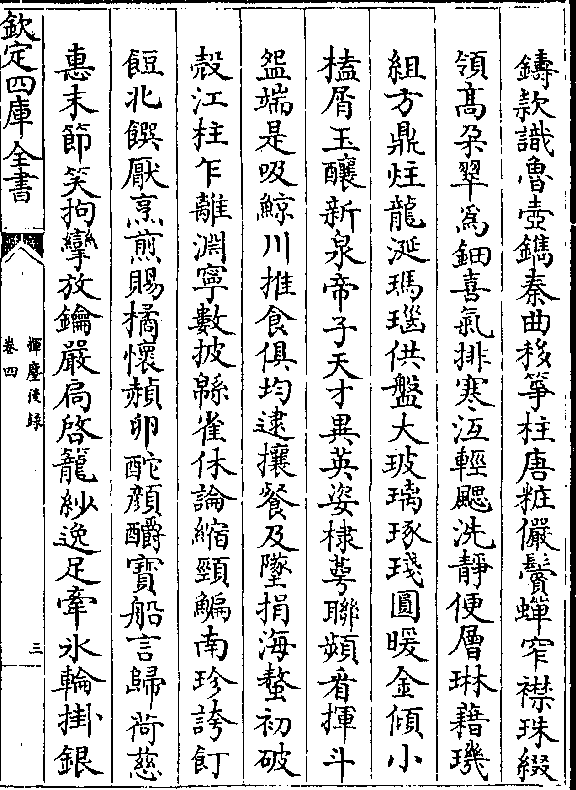 鑄款識魯壺鐫秦曲移箏柱唐粧儼鬢蟬窄襟珠綴
領髙朶翠為鈿喜氣排寒冱輕颸洗靜便層琳藉璣
組方鼎炷龍涎瑪瑙供盤大玻瓈琢琖圓暖金傾小
榼屑玉釀新泉帝子天才異英姿棣萼聯頻看揮斗
盌端是吸鯨川推食俱均逮攘餐及墜捐海螯初破
殻江柱乍離淵寧數披緜雀休論縮頸鯿南珍誇飣
餖北饌厭烹煎賜橘懷頳卵酡顔釂寳船言歸荷慈
惠末節笑拘攣放鑰嚴扃啓籠紗逸足牽氷輪掛銀
欽定四庫全書
揮麈後録
卷四
三